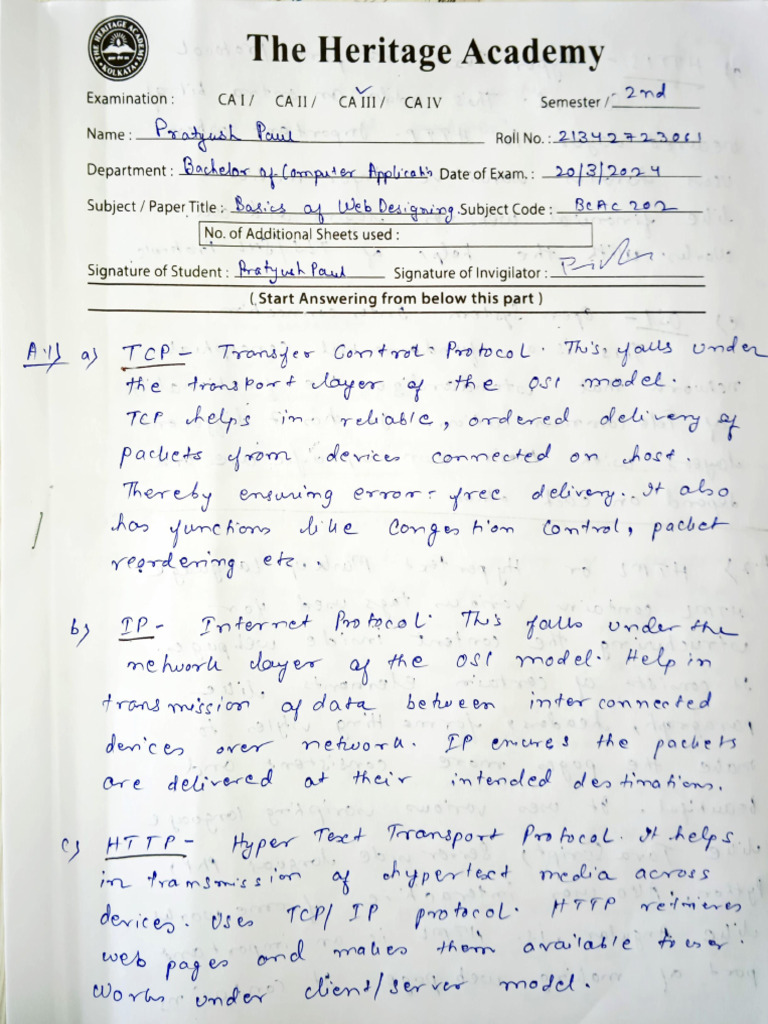 THE HERITAGE ACADEMY
• KOLKATA •
The Heritage Academy
Examination : CA I / CA II / CA III / CA IV Semester / 2nd
Name : Pratyush Paul Roll No. : 21342723061
Department : Bachelor of Computer Applicatn Date of Exam. : 20/3/2024
Subject / Paper Title : Basics of Web Designing. Subject Code : BCAC 202
No. of Additional Sheets used :
Signature of Student : Pratyush Paul Signature of Invigilator :
( Start Answering from below this part )
A.1) a) TCP - Transfer Control Protocol. This falls under
the transport layer of the OSI model.
TCP helps in reliable, ordered delivery of
packets from devices connected on host.
Thereby ensuring error-free delivery. It also
has functions like congestion control, packet
reordering etc.
b) IP - Internet Protocol. This falls under the
network layer of the OSI model. Help in
transmission of data between interconnected
devices over network. IP ensures the packets
are delivered at their intended destinations.
c) HTTP - Hyper Text Transport Protocol. It helps
in transmission of hypertext media across
devices. Uses TCP/IP protocol. HTTP retrieves
web pages and makes them available to user.
Works under client/server model.